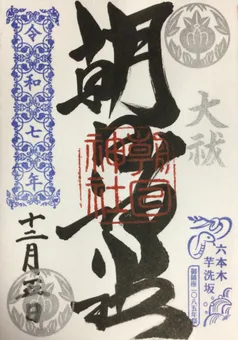 大祓
朝日神社
朝日神社
六本木
芋洗坂
令和七年
十二月
日